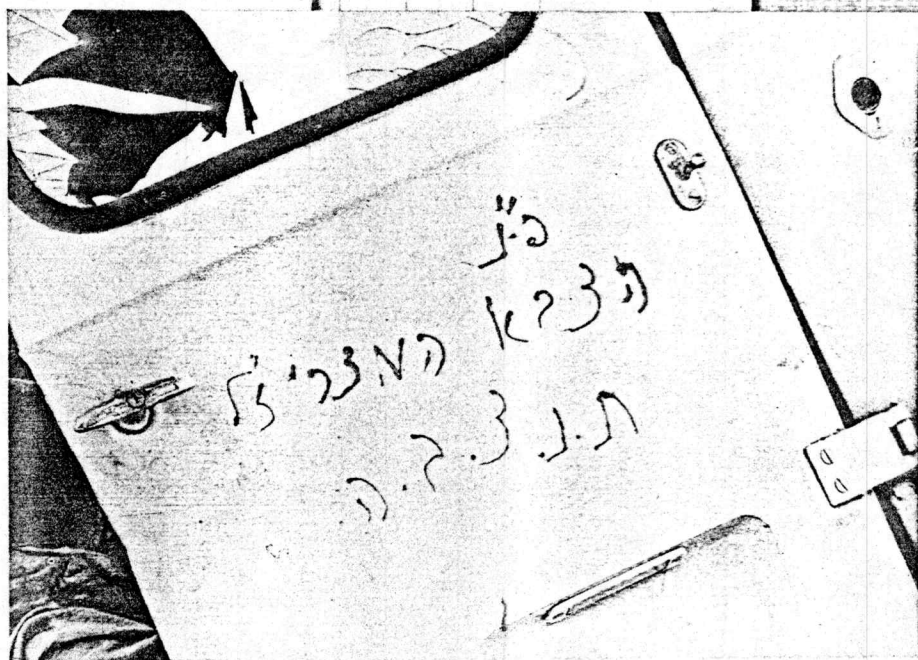 פ.נ"
הצבא המצרי ז"ל
ת.נ.צ.ב.ה.